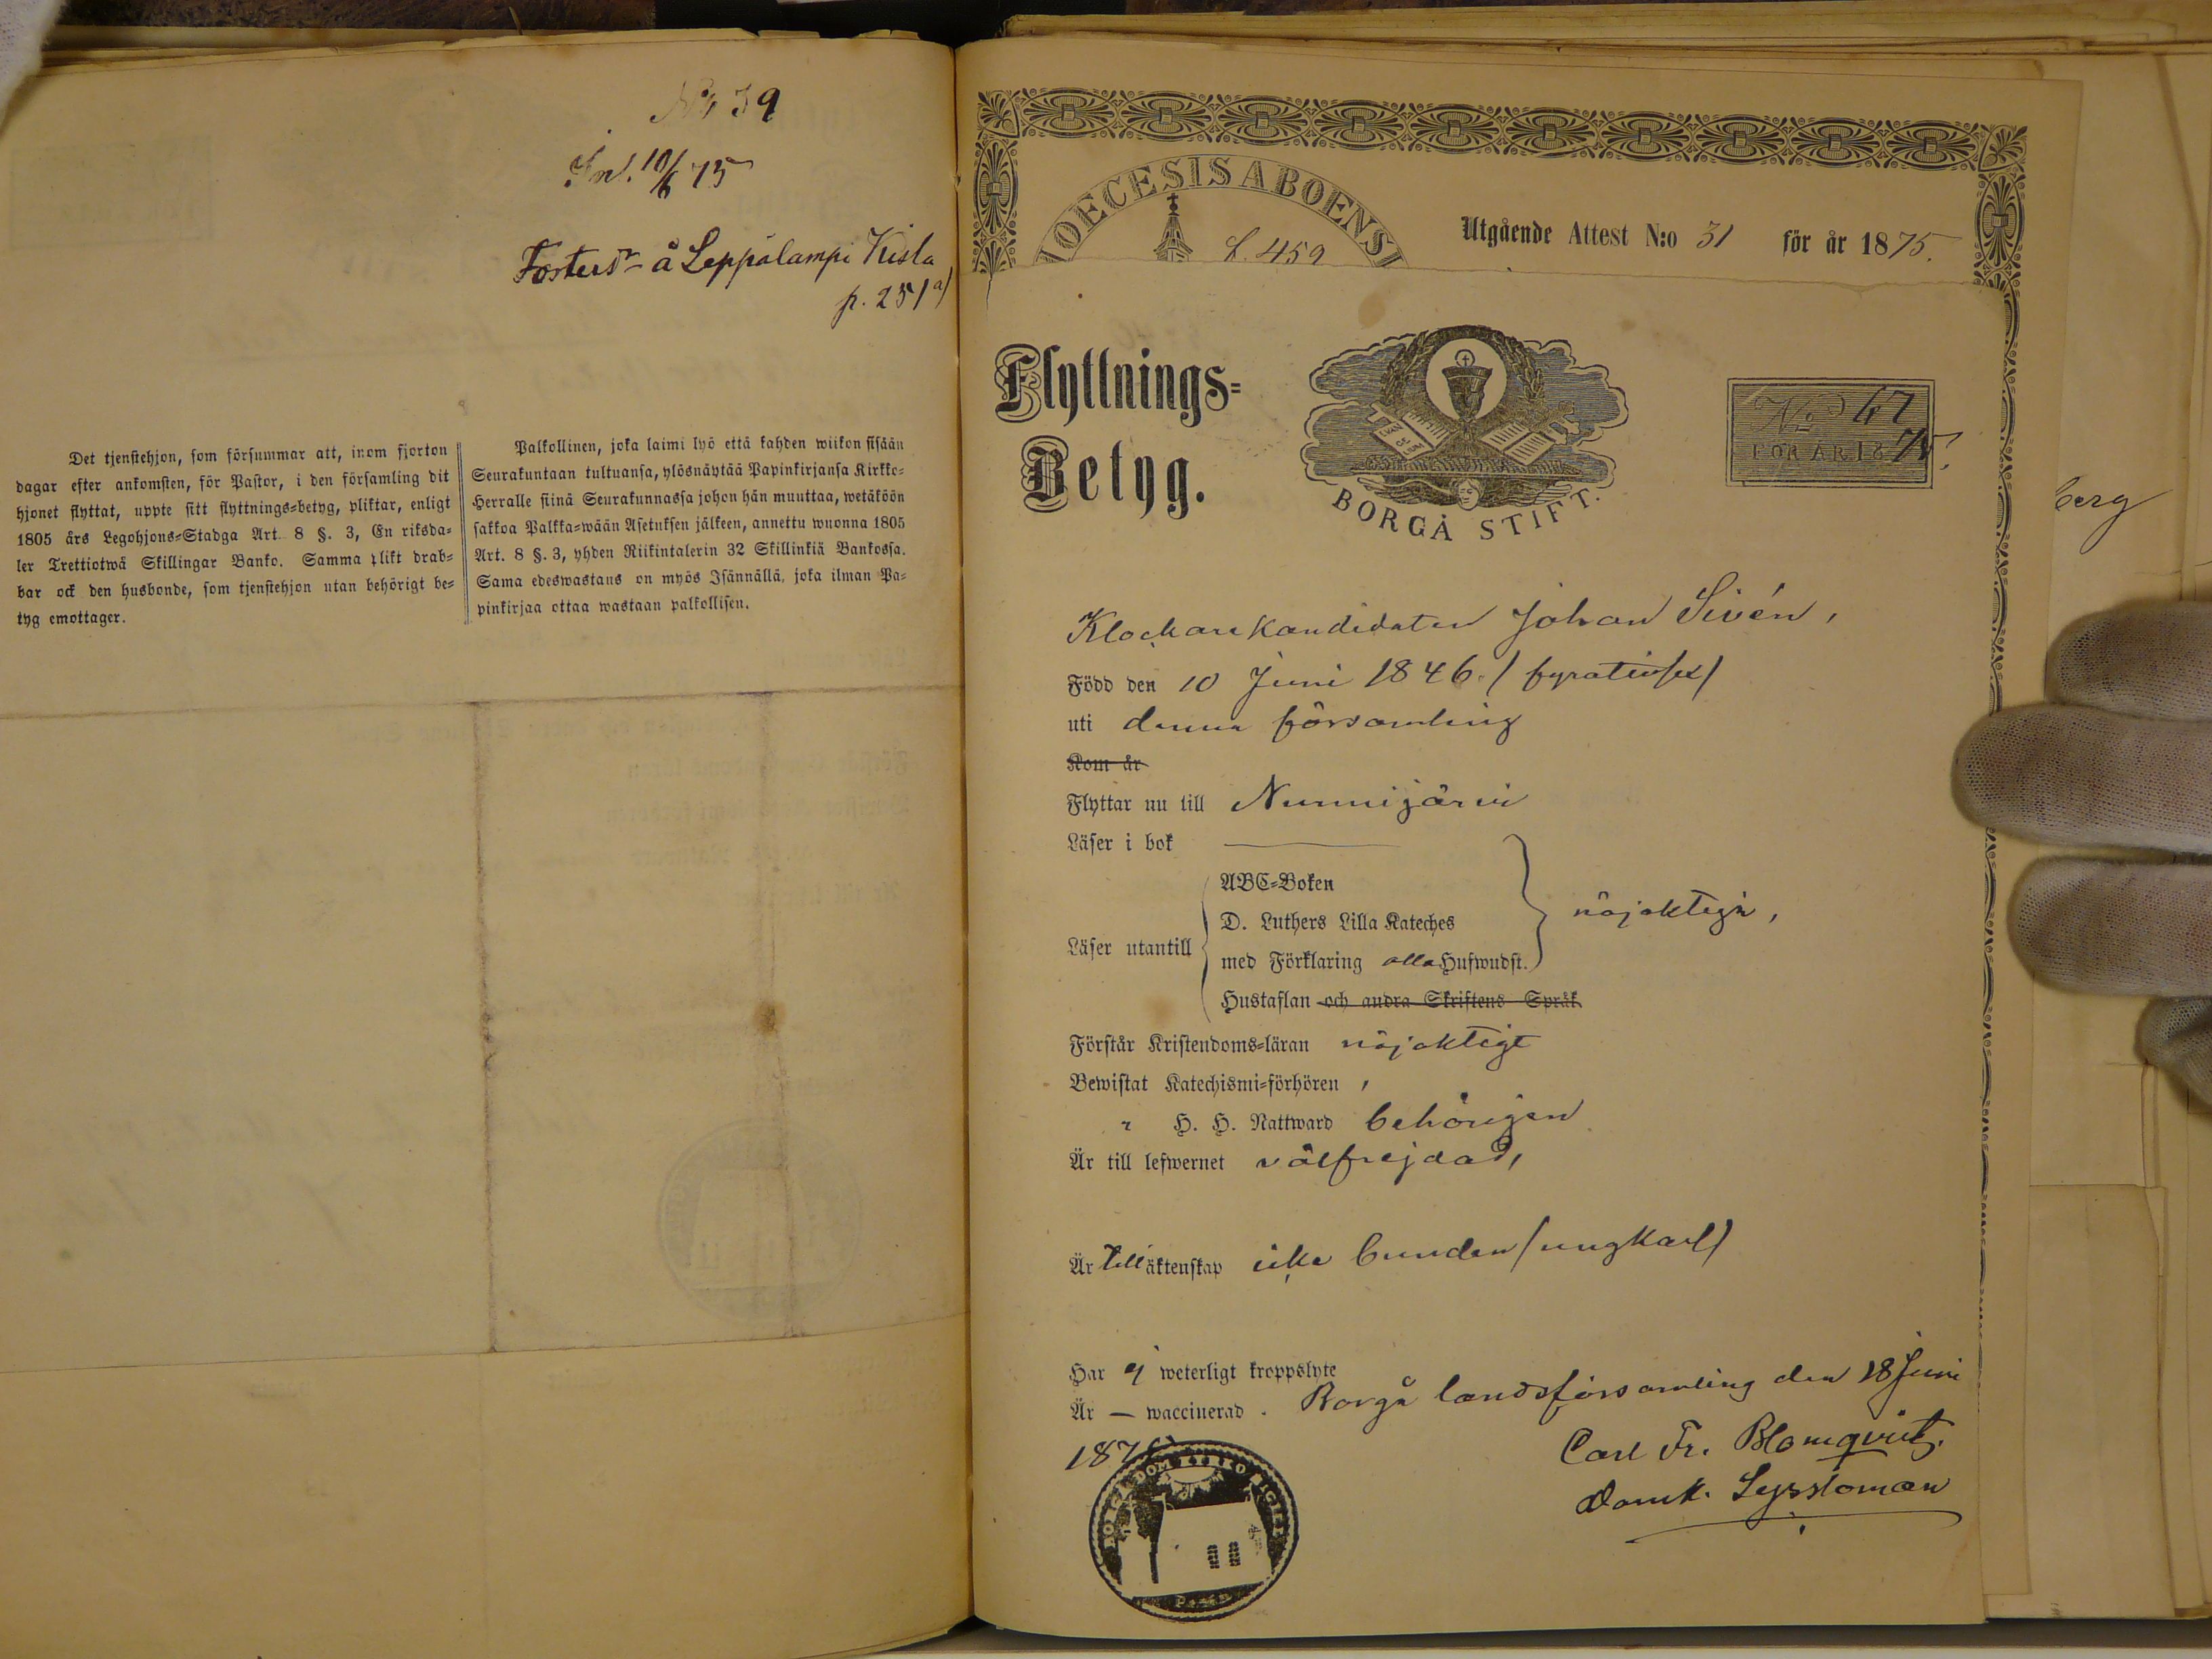 No 39
Inl. 10/6 75
Fosters- å Leppälampi Kisla
p. 251 a)
Det tjenstehjon, som försummar att, inom fjorton
dagar efter ankomsten, för Pastor, i den församling dit
hjonet flyttat, uppte sitt flyttnings=betyg, pliktar, enligt
1805 års Legohjons=Stadga Art. 8 §. 3, En riksda=
ler Trettiotwå Skillingar Banko. Samma plikt drab=
bar ock den husbonde, som tjenstehjon utan behörigt be=
tyg emottager.
Palkollinen, joka laimi lyö että kahden wiikon sisään
Seurakuntaan tultuansa, ylösnäytää Papinkirjansa Kirkko=
Herralle siinä Seurakunnassa johon hän muuttaa, wetäköön
sakkoa Palkka=wään Asetuksen jälkeen, annettu wuonna 1805
Art. 8 §. 3, yhden Riikintalerin 32 Skillinkiä Bankossa.
Sama edeswastaus on myös Isännällä, joka ilman Pa=
pinkirjaa ottaa wastaan palkollisen.
IOECESIS ABOENSI
L. 459
Utgående Attest N:o 31 för år 1875.
Flyttnings=
Betyg.
BORGÅ STIFT.
No 47
FÖR ÅR 1875.
Klockarekandidaten Johan Sivén,
Född den 10 Juni 1846. / fyratiosex /
uti denna församling
Kom år
Flyttar nu till Nummijärvi
Läser i bok
ABC=Boken
D. Luthers Lilla Kateches
Läser utantill
med Förklaring alla Hufwudst.
nöjaktigt,
Hustaflan och andra Skriftens Språk
Förstår Kristendoms=läran nöjaktigt
Bewistat Katechismi=förhören,
" H. H. Nattward behörigen
Är till lefwernet välfrejdad,
Är till äktenskap icke bunden / ungkarl /
Har ej weterligt kroppslyte
Är — waccinerad. Borgå landsförsamling den 18 Juni
1875
Carl Fr. Blomqvist.
DOM KYRKO SIGILL
berg